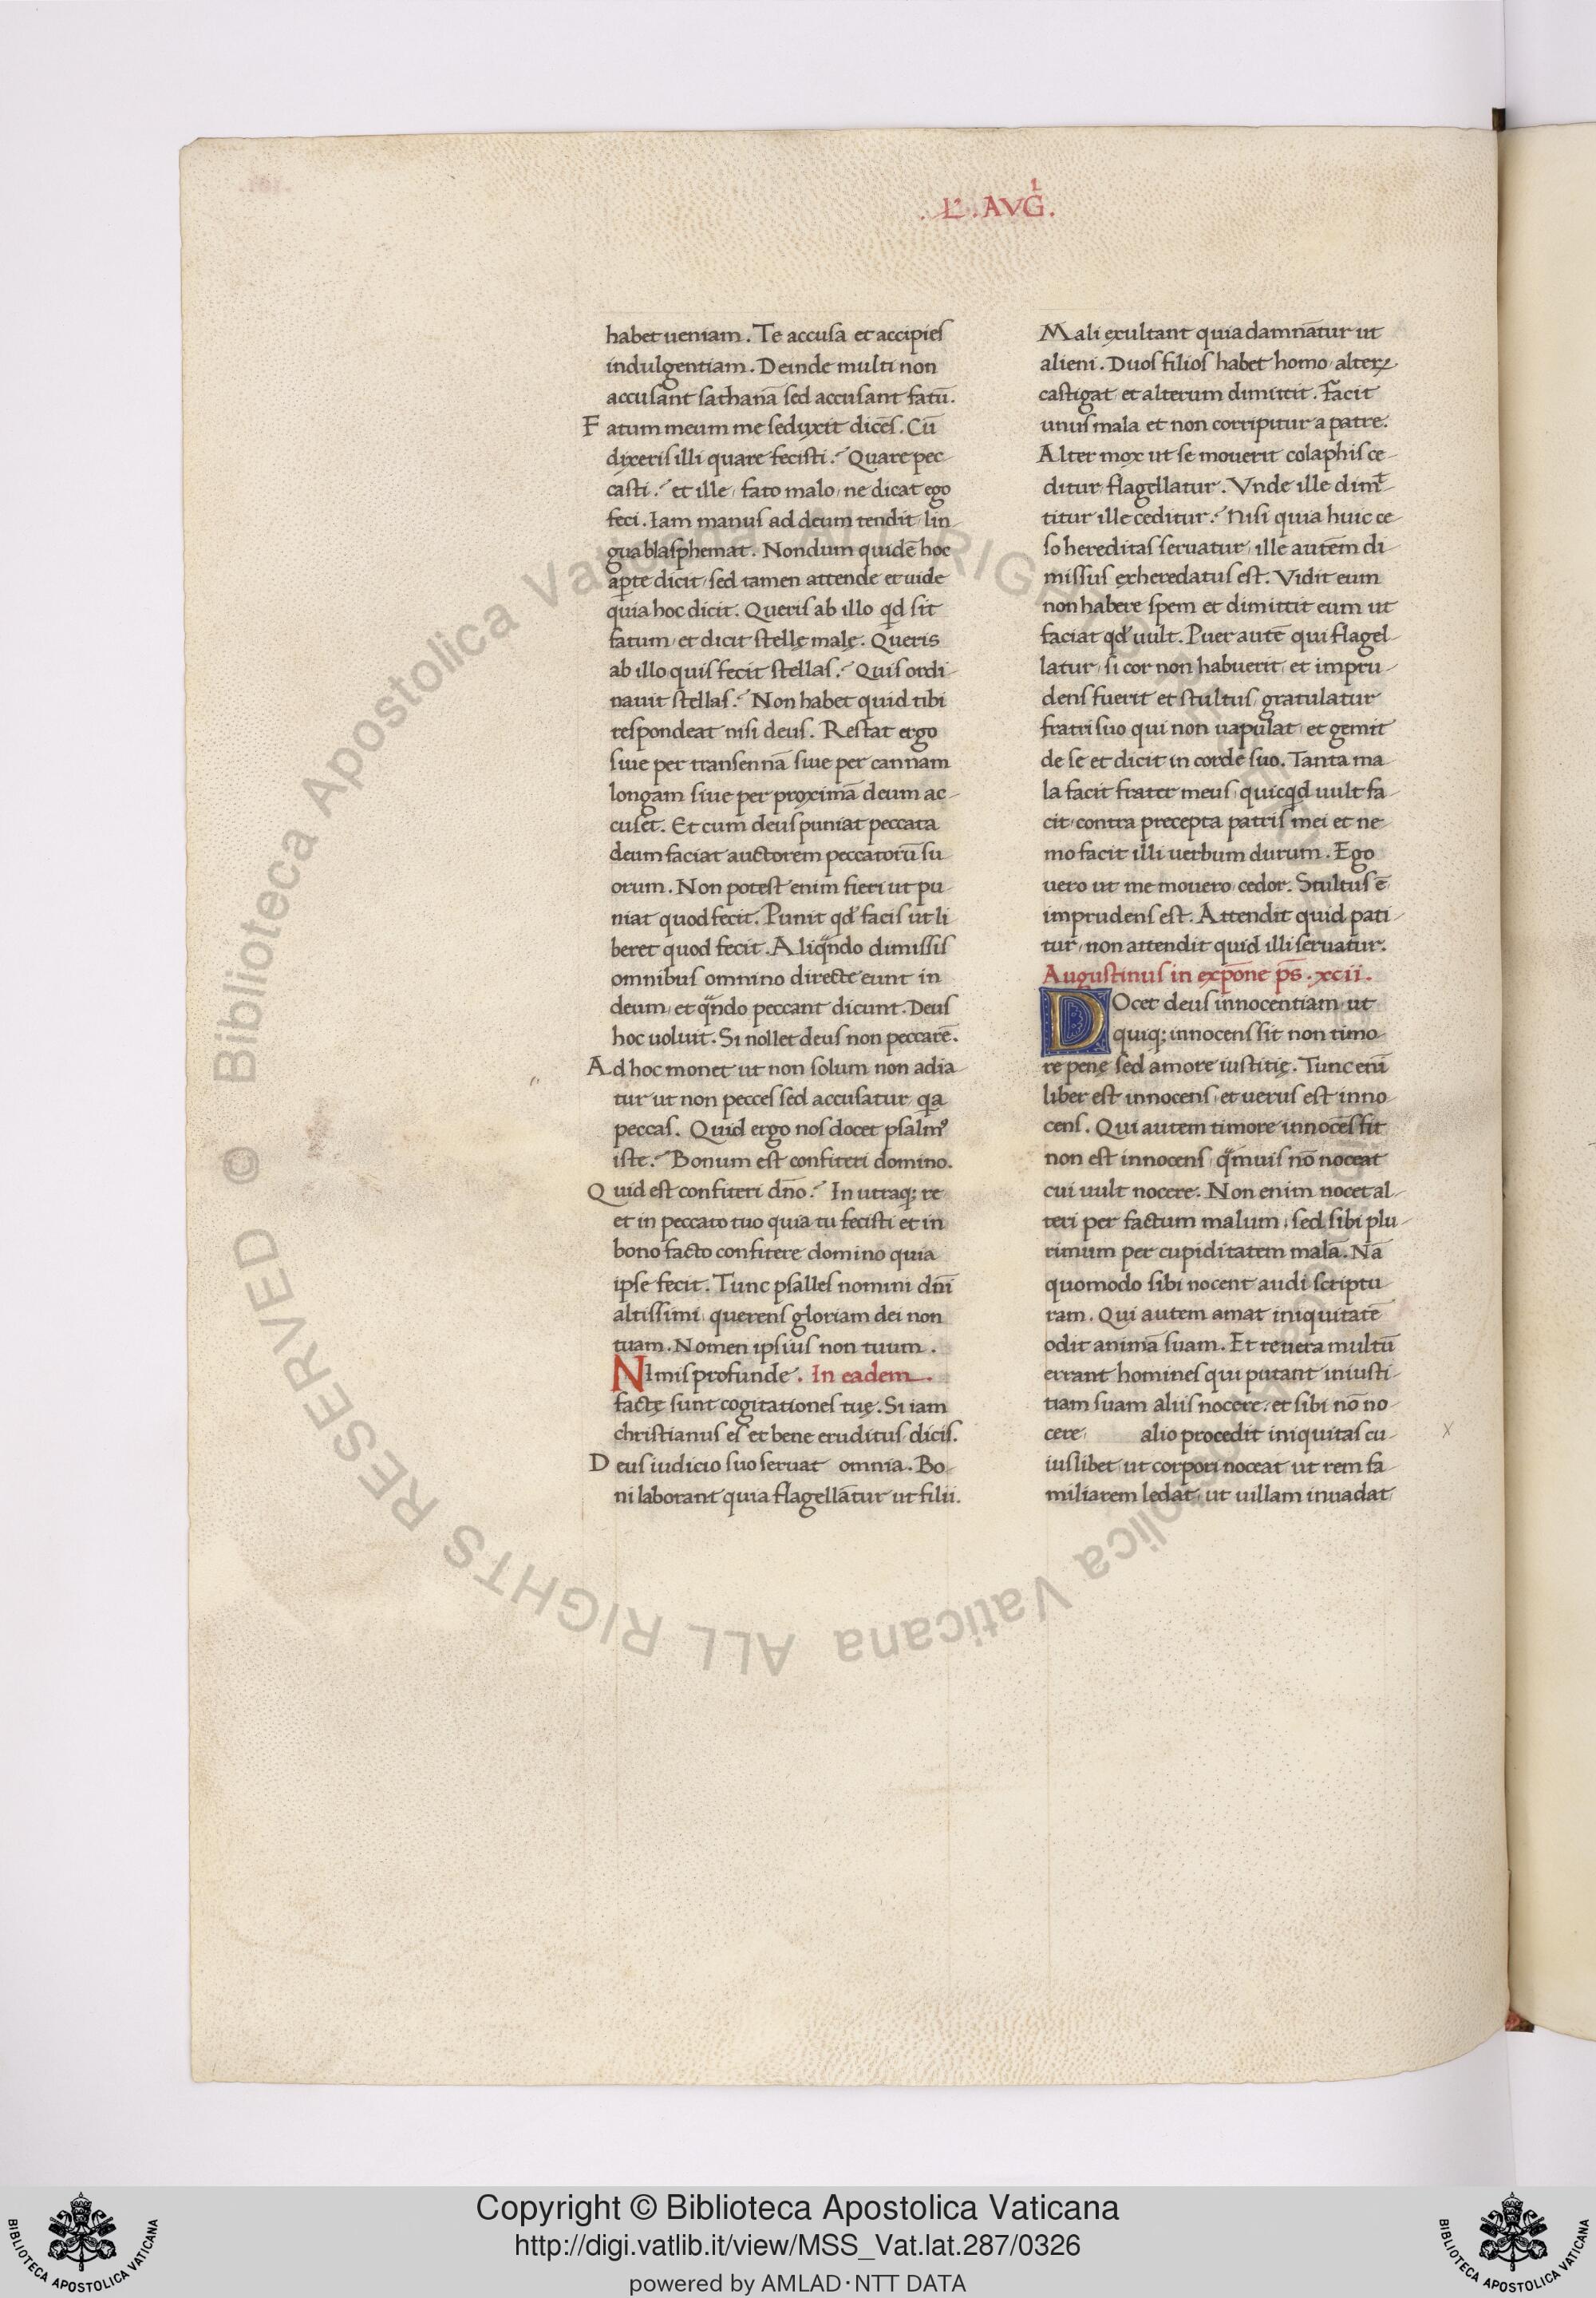 .L̄.AVG̅.
habet ueniam. Te accusa et accipies
indulgentiam. Deinde multi non
accusant sathanā sed accusant fatū.
Fatum meum me seduxit dicēs. Cū
dixeris illi quare fecisti? Quare pec
casti? et ille, fato malo, ne dicat ego
feci. Iam manus ad deum tendit, lin
gua blasphemat. Nondum quidē hoc
aꝑte dicit, sed tamen attende et uide
quia hoc dicit. Queris ab illo qd sit
fatum, et dicit stellę malę. Queris
ab illo quis fecit stellas? Quis ordi
nauit stellas? Non habet quid tibi
respondeat nisi deus. Restat ergo
siue per transennā siue per cannam
longam siue per proximā deum ac
cuset. Et cum deus puniat peccata
deum faciat auctorem peccatorū su
orum. Non potest enim fieri ut pu
niat quod fecit. Punit qd' facis ut li
beret quod fecit. Aliqndo dimissis
omnibus omnino directe eunt in
deum, et qndo peccant dicunt. Deus
hoc uoluit. Si nollet deus non peccarē.
Ad hoc monet ut non solum non adia
tur ut non pecces sed accusatur, qa
peccas. Quid ergo nos docet psalmꝰ
iste? Bonum est confiteri domino.
Quid est confiteri dn̄o? In utraqꝫ re
et in peccato tuo quia tu fecisti et in
bono facto confitere domino quia
ipse fecit. Tunc psalles nomini dn̄i
altissimi, querens gloriam dei non
tuam. Nomen ipsius non tuum.
NImis profunde. In eadem.
factę sunt cogitationes tuę. Si iam
christianus es et bene eruditus, dicis.
Deus iudicio suo seruat omnia. Bo
ni laborant quia flagellātur ut filii.
Mali exultant quia damnātur ut
alieni. Duos filios habet homo, alterꝝ
castigat, et alterum dimittit. Facit
unus mala et non corripitur a patre.
Alter mox ut se mouerit colaphis ce
ditur, flagellatur. Vnde ille dimt̄
titur ille ceditur? Nisi quia huic ce
so hereditas seruatur, ille autem di
missus exheredatus est. Vidit eum
non habere spem et dimittit eum ut
faciat qd' uult. Puer autē qui flagel
latur, si cor non habuerit, et impru
dens fuerit et stultus, gratulatur
fratri suo qui non uapulat, et gemit
de se et dicit in corde suo. Tanta ma
la facit frater meus, quicqd uult fa
cit, contra precepta patris mei et ne
mo facit illi uerbum durum. Ego
uero ut me mouero, cedor. Stultus ē
imprudens est. Attendit quid pati
tur, non attendit quid illi seruatur.
Augustinus in exp̄one p̄s. xcii.
DOcet deus innocentiam, ut
quiqꝫ innocens sit non timo
re penę sed amore iustitię. Tunc eni
liber est innocens, et uerus est inno
cens. Qui autem timore innocēs fit
non est innocens, qmuis nō noceat
cui uult nocere. Non enim nocet al
teri per factum malum, sed sibi plu
rimum per cupiditatem malā. Nā
quomodo sibi nocent audi scriptu
ram. Qui autem amat iniquitatē
odit animā suam. Et reuera multū
errant homines qui putant iniusti
tiam suam aliis nocere, et sibi nō no
cere, alio procedit iniquitas cu
iuslibet, ut corpori noceat ut rem fa
miliarem ledat, ut uillam inuadat
Copyright © Biblioteca Apostolica Vaticana
http://digi.vatlib.it/view/MSS_Vat.lat.287/0326
powered by AMLAD·NTT DATA
© Biblioteca Apostolica Vaticana ALL RIGHTS RESERVED
BIBLIOTECA APOSTOLICA VATICANA
BIBLIOTECA APOSTOLICA VATICANA